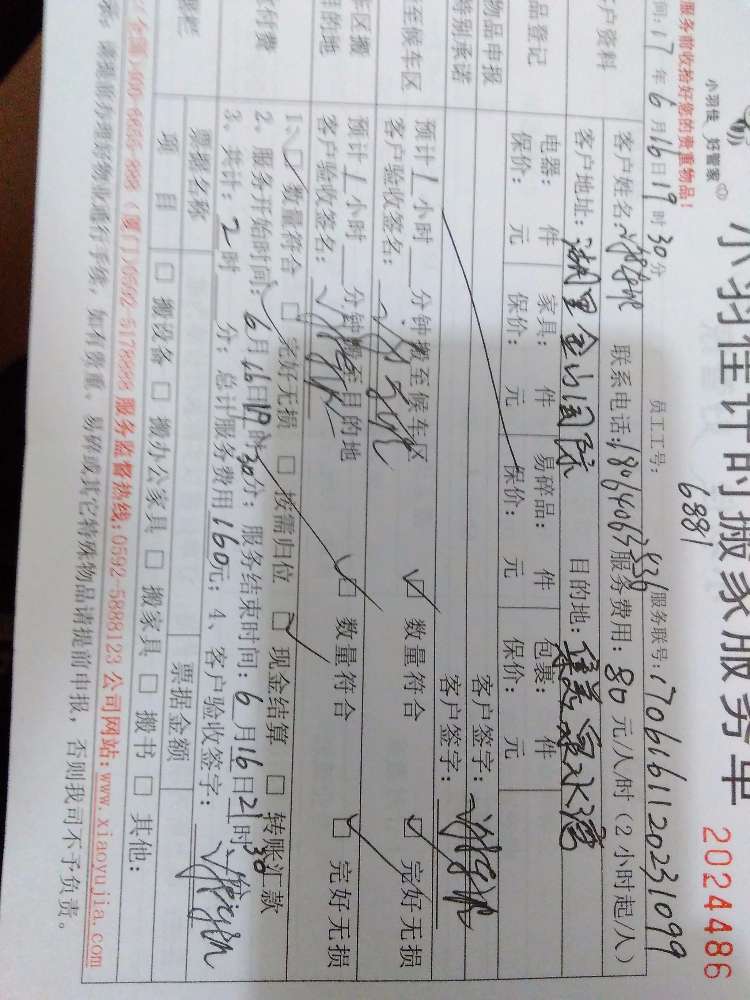 小羽佳 好管家
小羽佳计时搬家服务单
2024486
服务前收拾好您的贵重物品！
员工工号：6881
服务联号：1706161120231099
间：17年6月16日19时30分
户资料
客户姓名： 联系电话： 服务费用：80元/人/时（2小时起/人）
客户地址：湖里金山国际 目的地：集美 水湾
品登记
电器： 件 家具： 件 易碎品： 件 包裹： 件
保价： 元 保价： 元 保价： 元 保价： 元
物品申报
客户签字：
特别承诺
客户签字：
至候车区
预计1小时 分钟搬至候车区 ☑ 数量符合 ☑ 完好无损
客户验收签名：
车区搬
目的地
预计1小时 分钟搬至目的地 ☑ 数量符合 ☑ 完好无损
客户验收签名：
付费
1、☑ 数量符合 ☐ 完好无损 ☐ 按需归位 ☑ 现金结算 ☐ 转账汇款
2、服务开始时间：6月16日19时30分；服务结束时间：6月16日21时30分
3、共计：2时 分；总计服务费用160元；4、客户验收签字：
票据栏
票据名称 票据金额
项目 ☐ 搬设备 ☐ 搬办公家具 ☐ 搬家具 ☐ 搬书 ☐ 其他：
（全国）400-6655-888（厦门）0592-5178888 服务监督热线：0592-5888123 公司网站：www.xiaoyujia.com
请提前办理好物业通行手续，如有贵重、易碎或其它特殊物品请提前申报，否则我司不予负责。